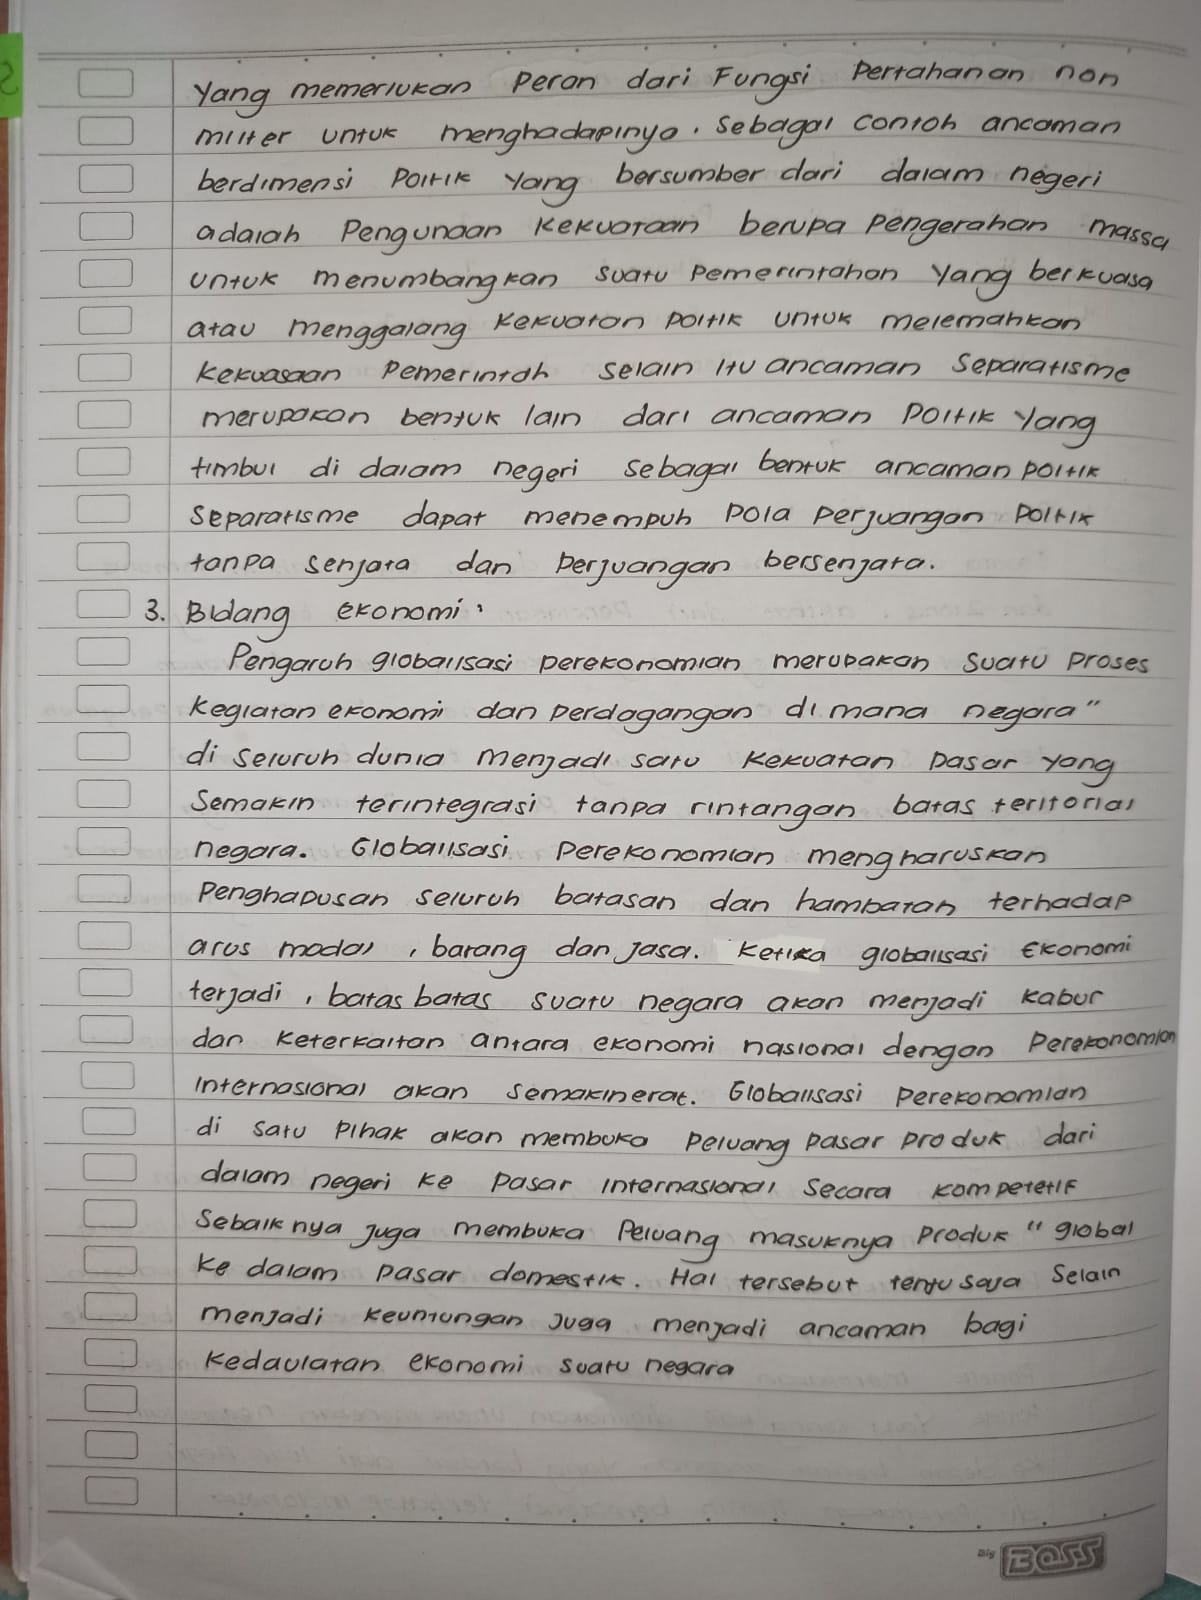 Yang memerlukan Peran dari Fungsi Pertahanan non
militer untuk menghadapinya. Sebagai contoh ancaman
berdimensi Politik Yang bersumber dari dalam negeri
adalah Pengunaan Kekuataan berupa Pengerahan Massa
untuk menumbangkan suatu Pemerintahan Yang berkuasa
atau menggalang Kekuatan Politik untuk melemahkan
Kekuasaan Pemerintah Selain itu ancaman Separatisme
merupakan bentuk lain dari ancaman Politik Yang
timbul di dalam negeri sebagai bentuk ancaman Politik
Separatisme dapat menempuh Pola Perjuangan Politik
tanpa senjata dan Perjuangan bersenjata.
3. Bidang ekonomi:
Pengaruh globalisasi perekonomian merupakan suatu Proses
Kegiatan ekonomi dan perdagangan di mana negara"
di Seluruh dunia menjadi satu Kekuatan Pasar Yang
Semakin terintegrasi tanpa rintangan batas teritorial
negara. Globalisasi Perekonomian mengharuskan
Penghapusan seluruh batasan dan hambatan terhadap
arus modal, barang dan jasa. Ketika globalisasi Ekonomi
terjadi, batas batas suatu negara akan menjadi kabur
dan Keterkaitan antara ekonomi nasional dengan Perekonomian
Internasional akan Semakin erat. Globalisasi Perekonomian
di satu Pihak akan membuka Peluang Pasar Produk dari
dalam negeri Ke Pasar Internasional Secara Kompetetif
Sebaiknya juga membuka Peluang masuknya Produk " global
Ke dalam Pasar domestik. Hal tersebut tentu saja Selain
menjadi Keuntungan Juga menjadi ancaman bagi
Kedaulatan ekonomi suatu negara
Big BOSS